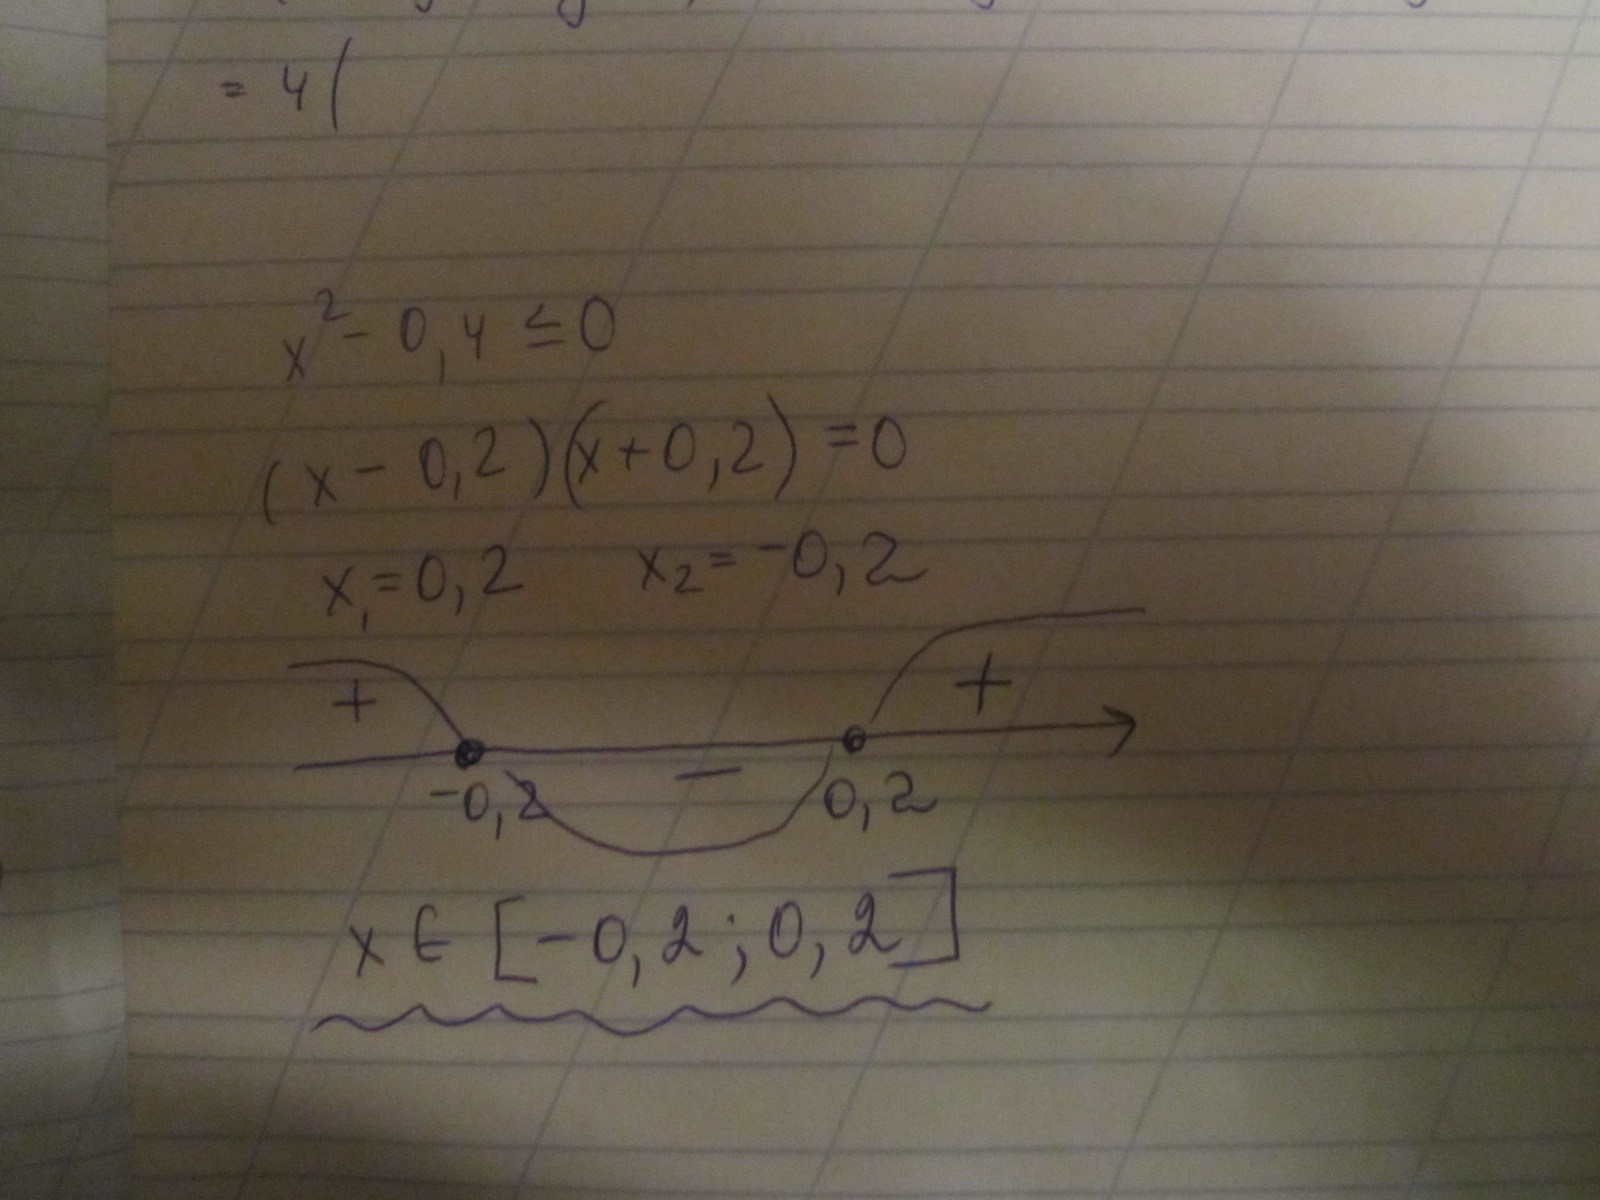 = 4 (
x² - 0,4 ≤ 0
(x - 0,2)(x + 0,2) = 0
x₁ = 0,2 x₂ = -0,2
+ - +
-0,2 0,2
x ∈ [-0,2 ; 0,2]